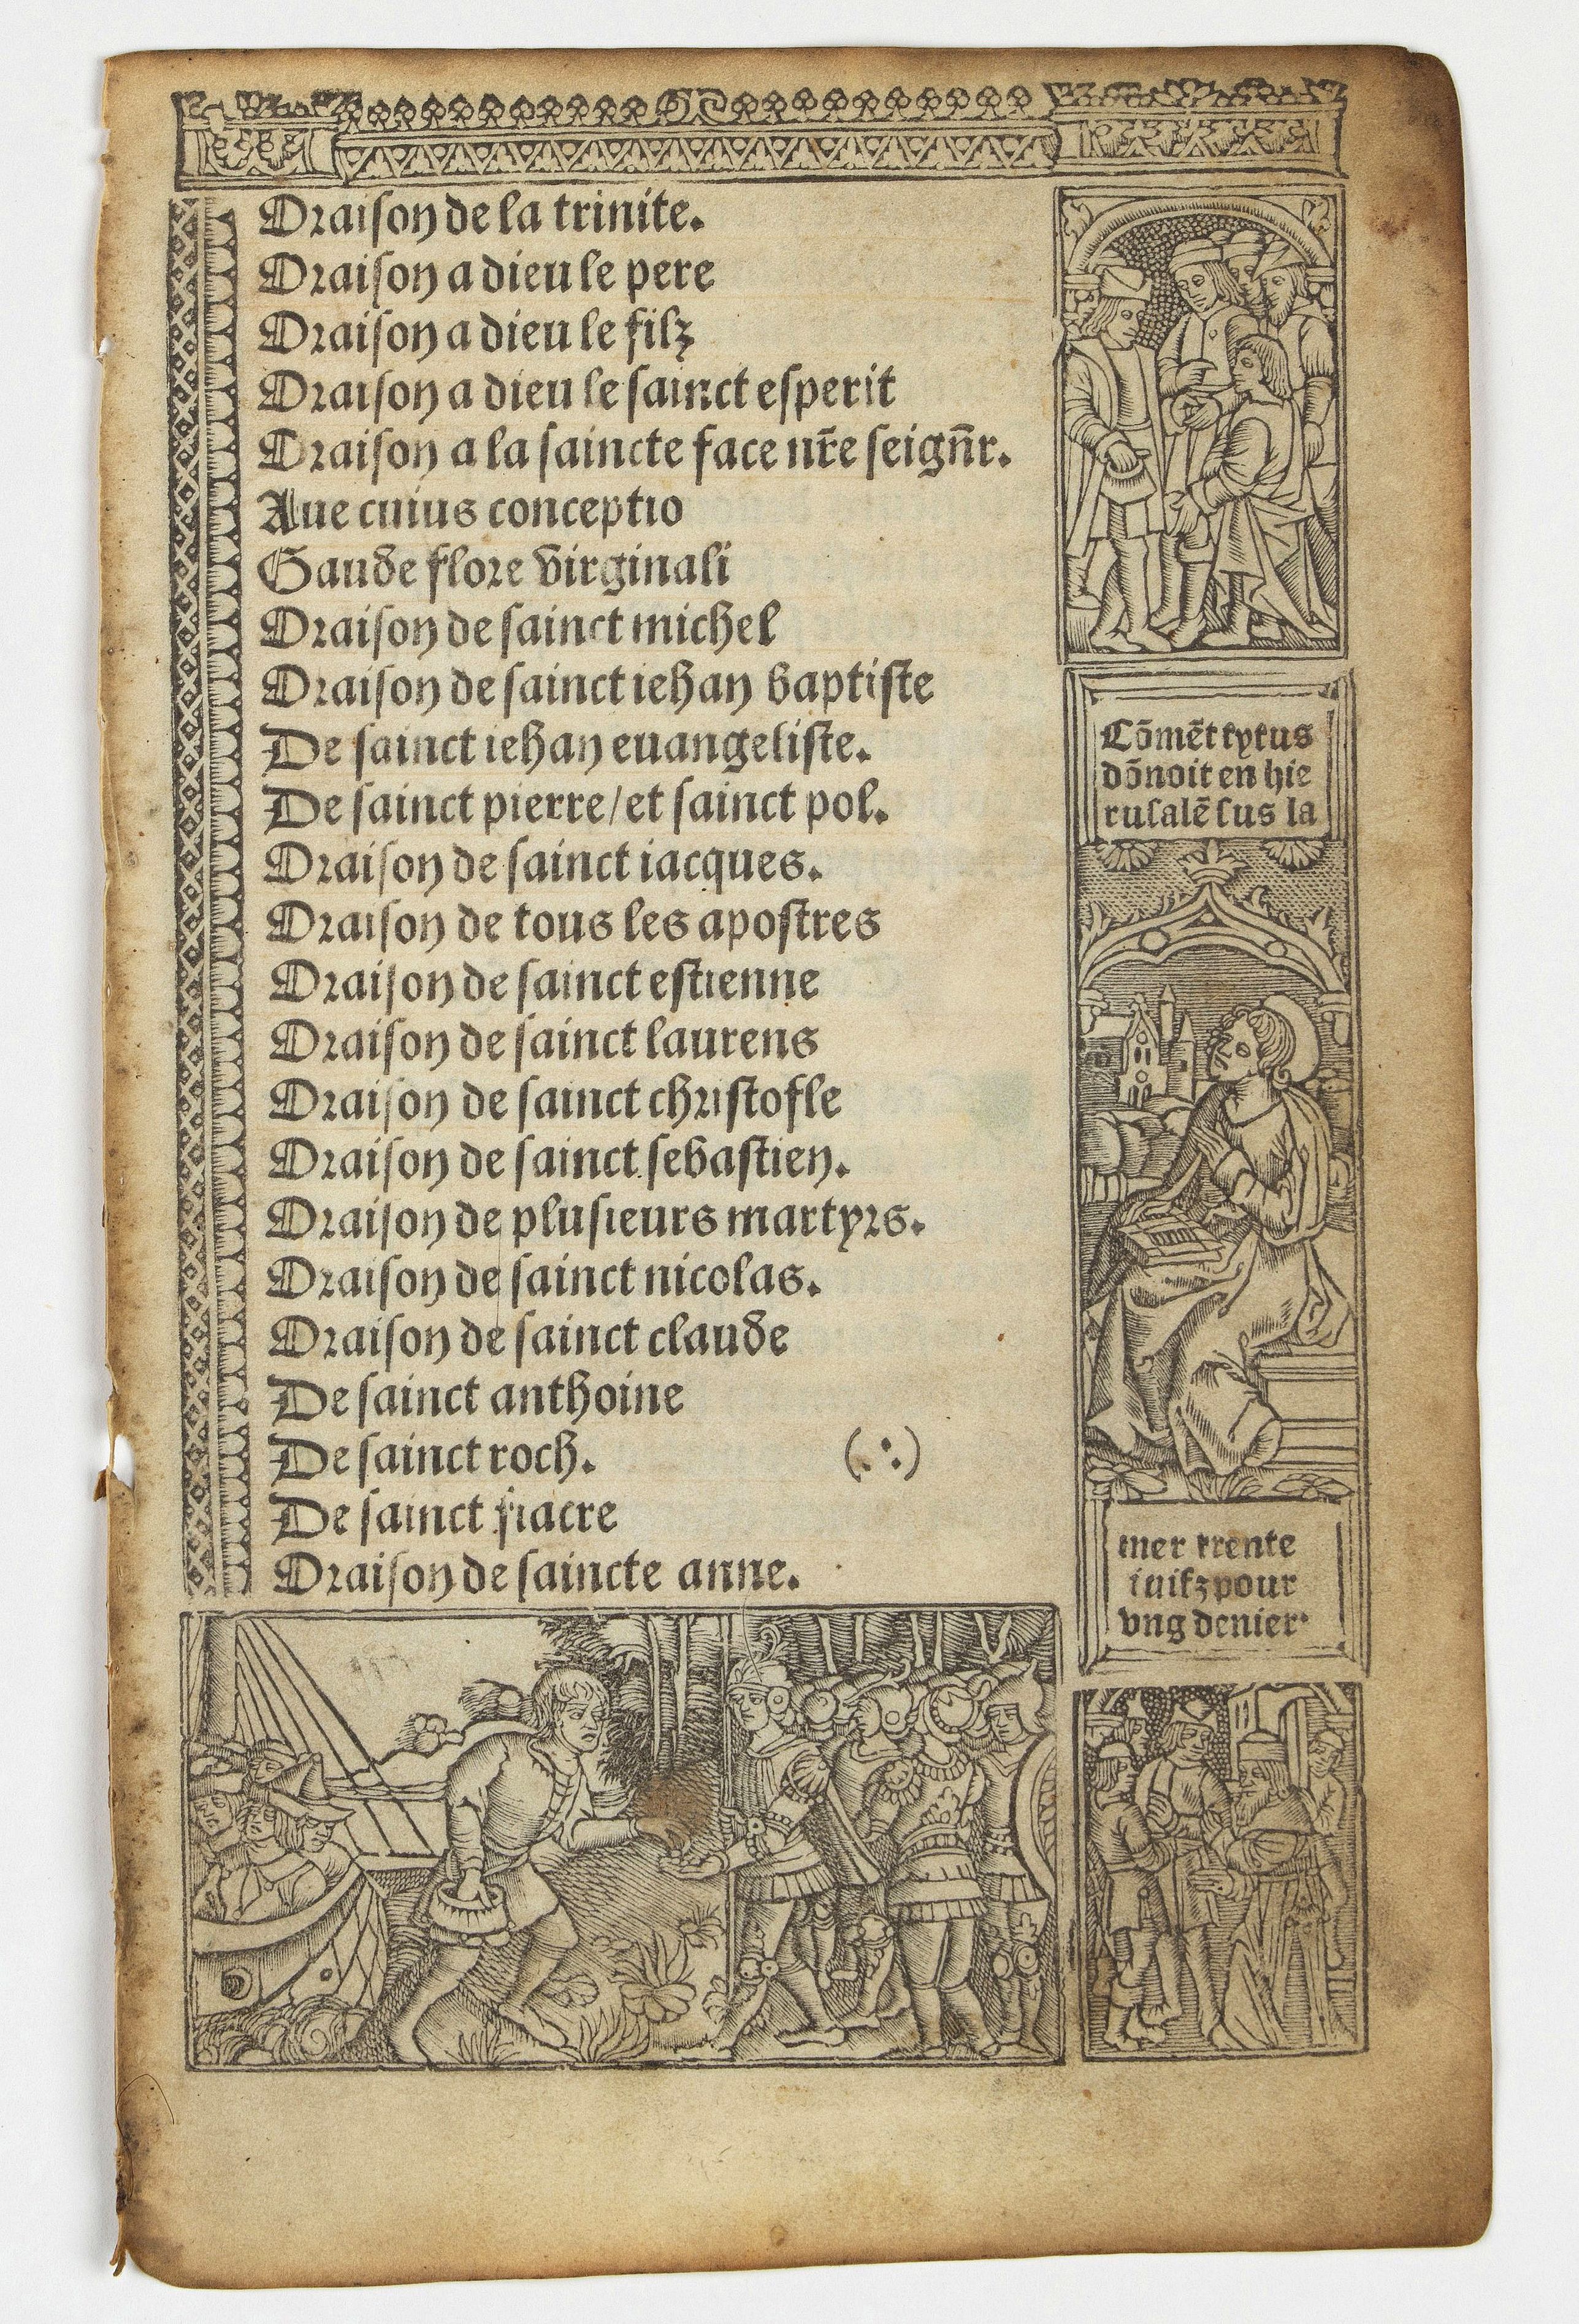 Oraison de la trinite.
Oraison a dieu le pere
Oraison a dieu le filz
Oraison a dieu le sainct esperit
Oraison a la saincte face nr̄e seign̄r.
Aue cuius conceptio
Gaude flore virginali
Oraison de sainct michel
Oraison de sainct iehan baptiste
De sainct iehan euangeliste.
De sainct pierre/et sainct pol.
Oraison de sainct iacques.
Oraison de tous les apostres
Oraison de sainct estienne
Oraison de sainct laurens
Oraison de sainct christofle
Oraison de sainct sebastien.
Oraison de plusieurs martyrs.
Oraison de sainct nicolas.
Oraison de sainct claude
De sainct anthoine
De sainct roch.
De sainct fiacre
Oraison de saincte anne.
Cōmēt tytus
dōnoit en hie
rusalē sus la
mer trente
iuifz pour
vng denier·